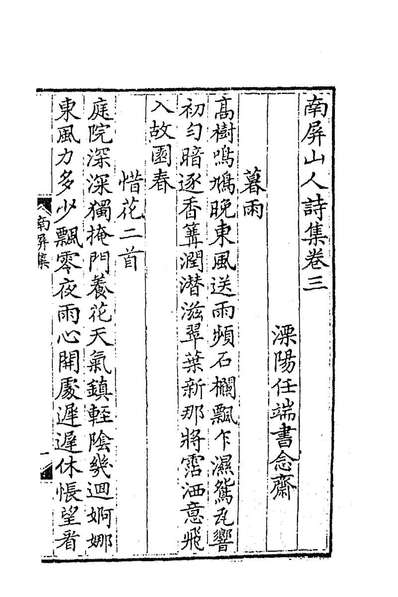 南屏山人詩集卷三
溧陽任端書念齋
暮雨
高樹鳴鳩晚東風送雨頻石欄飄乍濕鴛瓦響
初勻暗逐香篝潤潛滋翠葉新那將霑洒意飛
入故園春
惜花二首
庭院深深獨掩門養花天氣鎮輕陰幾迴婀娜
東風力多少飄零夜雨心開處遲遲休悵望看
南屏集
一